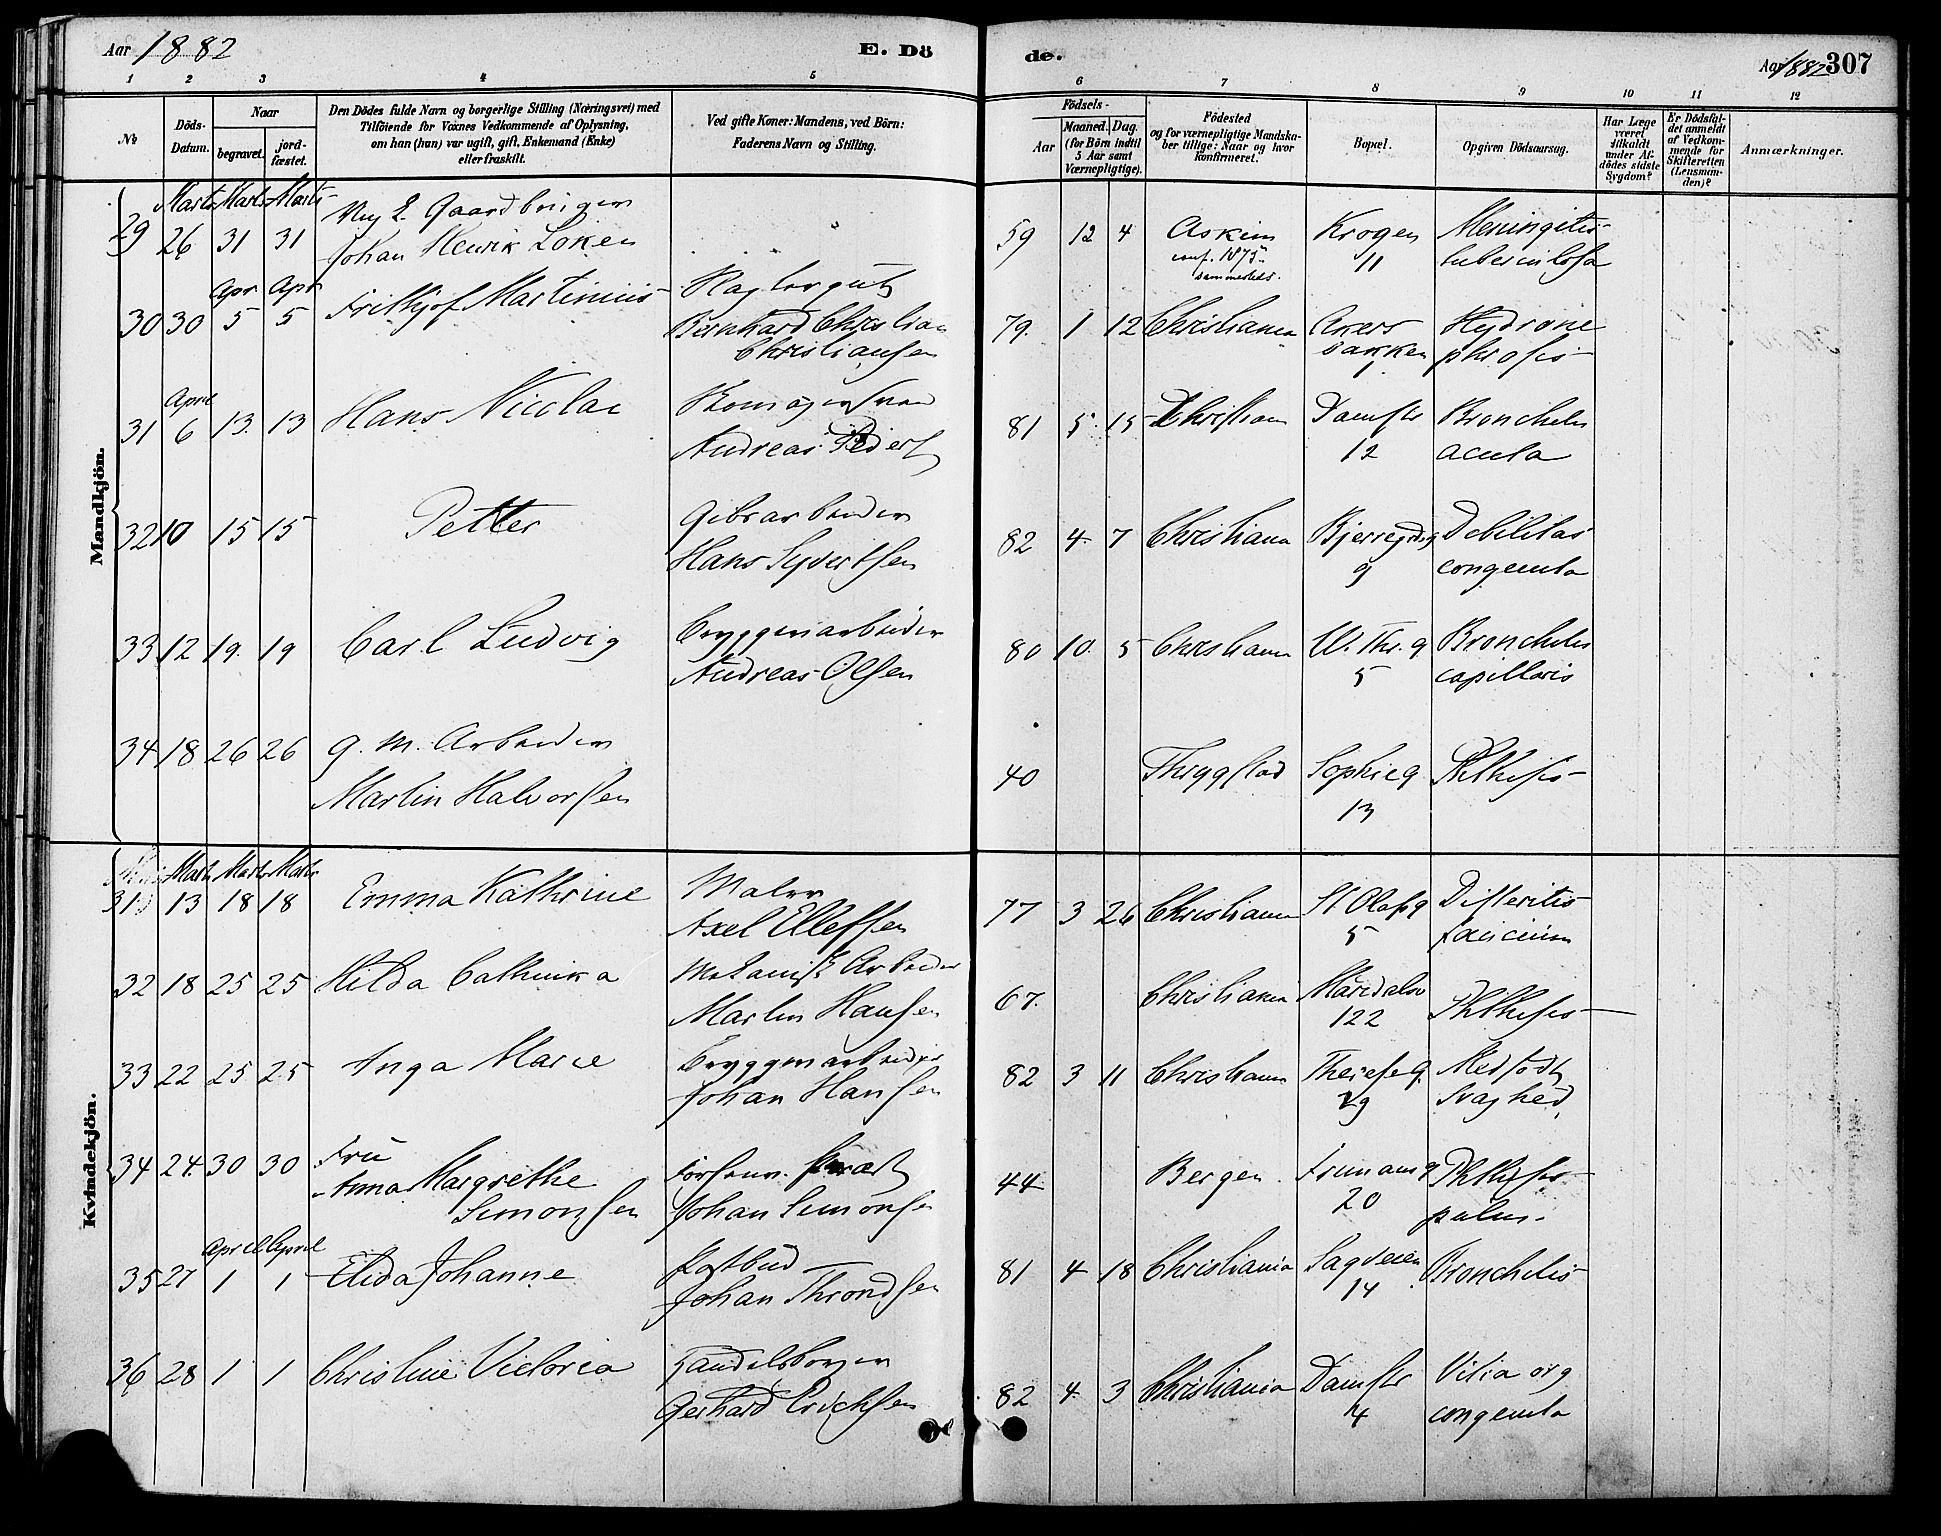 Aar 1882 E. Dö
de. Aar 1882 307
1 2 3 4 5
6 7 8 9 10 11 12
№ Döds-Datum. Naar begravet. jord-fæstet. Den Dödes fulde Navn og borgerlige Stilling (Næringsvei) med Tilföiende for Voxnes Vedkommende af Oplysning, om han (hun) var ugift, gift, Enkemand (Enke) eller fraskilt. Ved gifte Koner: Mandens, ved Börn: Faderens Navn og Stilling.
Födsels- Aar Maaned. Dag. (for Börn indtil 5 Aar samt Værnepligtige). Födested og for værnepligtige Mandskaber tillige: Naar og hvor konfirmeret. Bopæl. Opgiven Dödsaarsag. Har Læge været tilkaldt under Afdödes sidste Sygdom? Er Dödsfaldet anmeldt af Vedkommende for Skifteretten (Lensmanden)? Anmærkninger.
Mandkjön.
Marts Marts Marts
29 26 31 31 Johan Henrik Løken 59 12 4 Askim conf. 1875 sammesteds. Krogen 11 Meningitis tuberculosa
Apr Apr
30 30 5 5 Frithjof Martinius Bernhard Christian Christiansen 79. 1 12 Christiania Akersbakken Hydronephrosis
April
31 6 13. 13 Hans Nicolai Andreas Peders 81 5. 15 Christiania Damstr 12 Bronchitis acuta
32 10 15 15 Petter Gibsarbeider Hans Syvertsen 82 4. 7 Christiania 9 Debilitas congenita
33 12 19. 19 Carl Ludvig Bryggeriarbeider Andreas Olsen 80 10. 5 Christiania W. Thr. g 5 Bronchitis capillaris
34 18 26 26 g. M. Arbeider Martin Halvorsen 40 Thrygstad Sophieg 13 Phthisis
Kvindekjön.
Marts Marts Marts
31 13 18 18 Emma Kathrine Maler Axel Ellefsen 77 3 26 Christiania St Olafsg 5 Difteritis faucium
32 18 25 25 Hilda Cathinka Mekanisk Arbeider Martin Hansen 67. Christiania Maridalsv 122 Phthisis
33 22 25 25 Inga Marie Bryggeriarbeider Johan Hansen 82 3 11 Christiania Theresesg. 29 Medfødt Svaghed,
34 24. 30 30 Fru Anna Margrethe Simonsen Johan Simonsen 44 Bergen. 20 Phthisis pulm.
April April
35 27 1 1 Elida Johanne Postbud Johan Throndsen 81 4 18 Christiania Sagveien 14 Bronchitis
36 28 1 1 Christine Victoria Handelsborger Gerhard Erichsen 82 4. 3 Christiania Damstr 4 Vitia org congenita